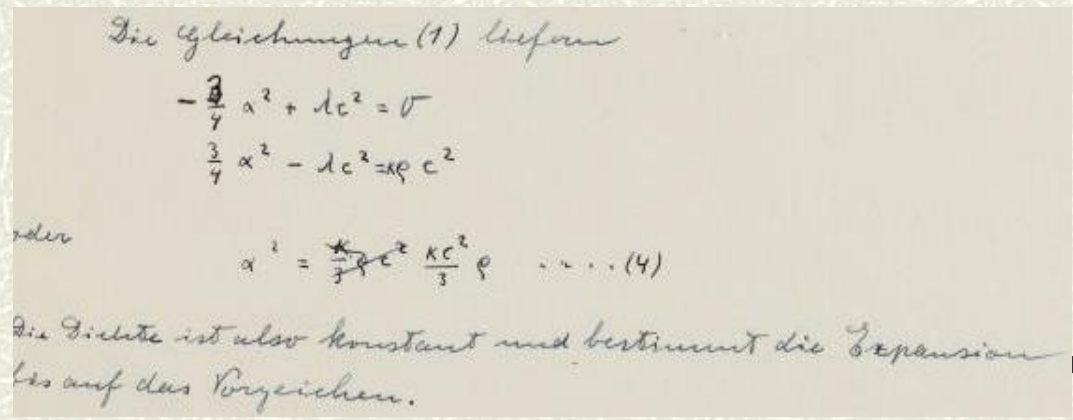 Die Gleichungen (1) liefern
- 3/4 α² + λc² = 0
3/4 α² - λc² = κρ c²
oder
α² = κ/3 ρ c² κc²/3 ρ .....(4)
Die Dichte ist also konstant und bestimmt die Expansion
bis auf das Vorzeichen.